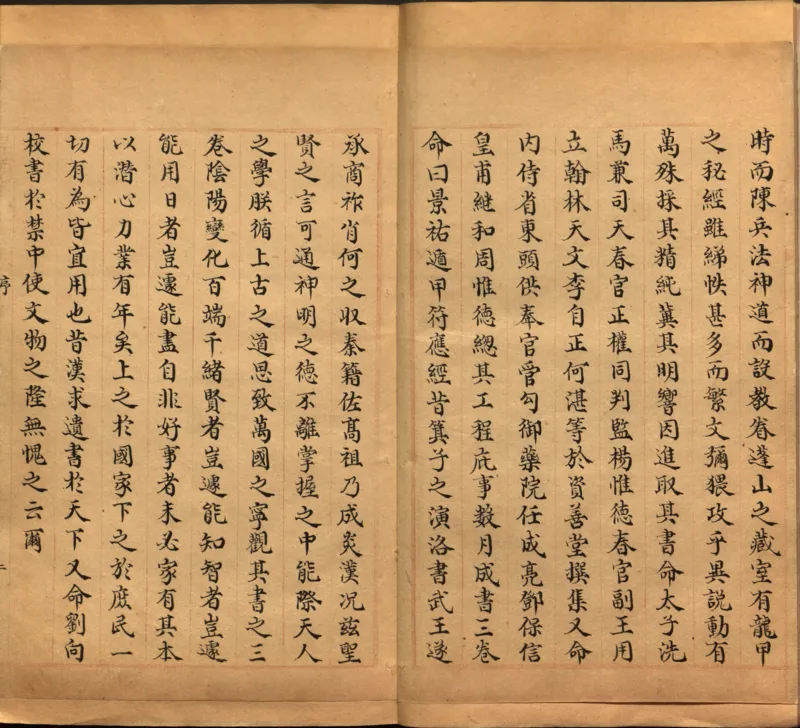 時而陳兵法神道而設教眷蓬山之藏室有龍甲
之秘經雖綈帙甚多而繁文彌猥攻乎異說動有
萬殊採其精純冀其明響因進取其書命太子洗
馬兼司天春官正權同判監楊惟德春官副王用
立翰林天文李自正何湛等於資善堂撰集又命
内侍省東頭供奉官管勾御藥院任成亮鄧保信
皇甫継和周惟德總其工程庇事数月成書三巻
命曰景祐遁甲符應經昔箕子之演洛書武王遂
承商祚肖何之収秦籍佐髙祖乃成炎漢况兹聖
賢之言可通神明之德不離掌握之中能際天人
之學朕循上古之道思致萬國之寧觀其書之三
巻陰陽變化百端千緒賢者豈遽能知智者豈遽
能用日者豈遽能盡自非好事者未必家有其本
以潛心力業有年矣上之於國家下之於庶民一
切有為皆宜用也昔漢求遺書於天下又命劉向
校書於禁中使文物之隆無愧之云爾
序
二